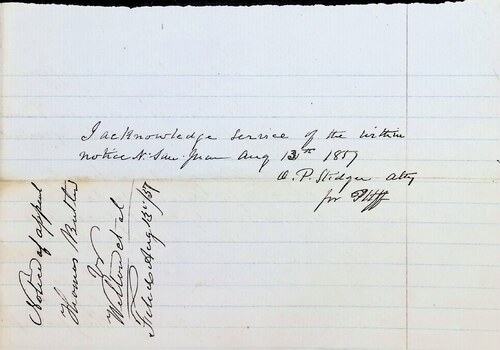 I acknowledge service of the within
notice N. San Juan Aug 13th 1857
O. P. Stidger atty
for Plff
Notice of appeal
Thomas Butler
vs
et al
Filed Aug 13th/57